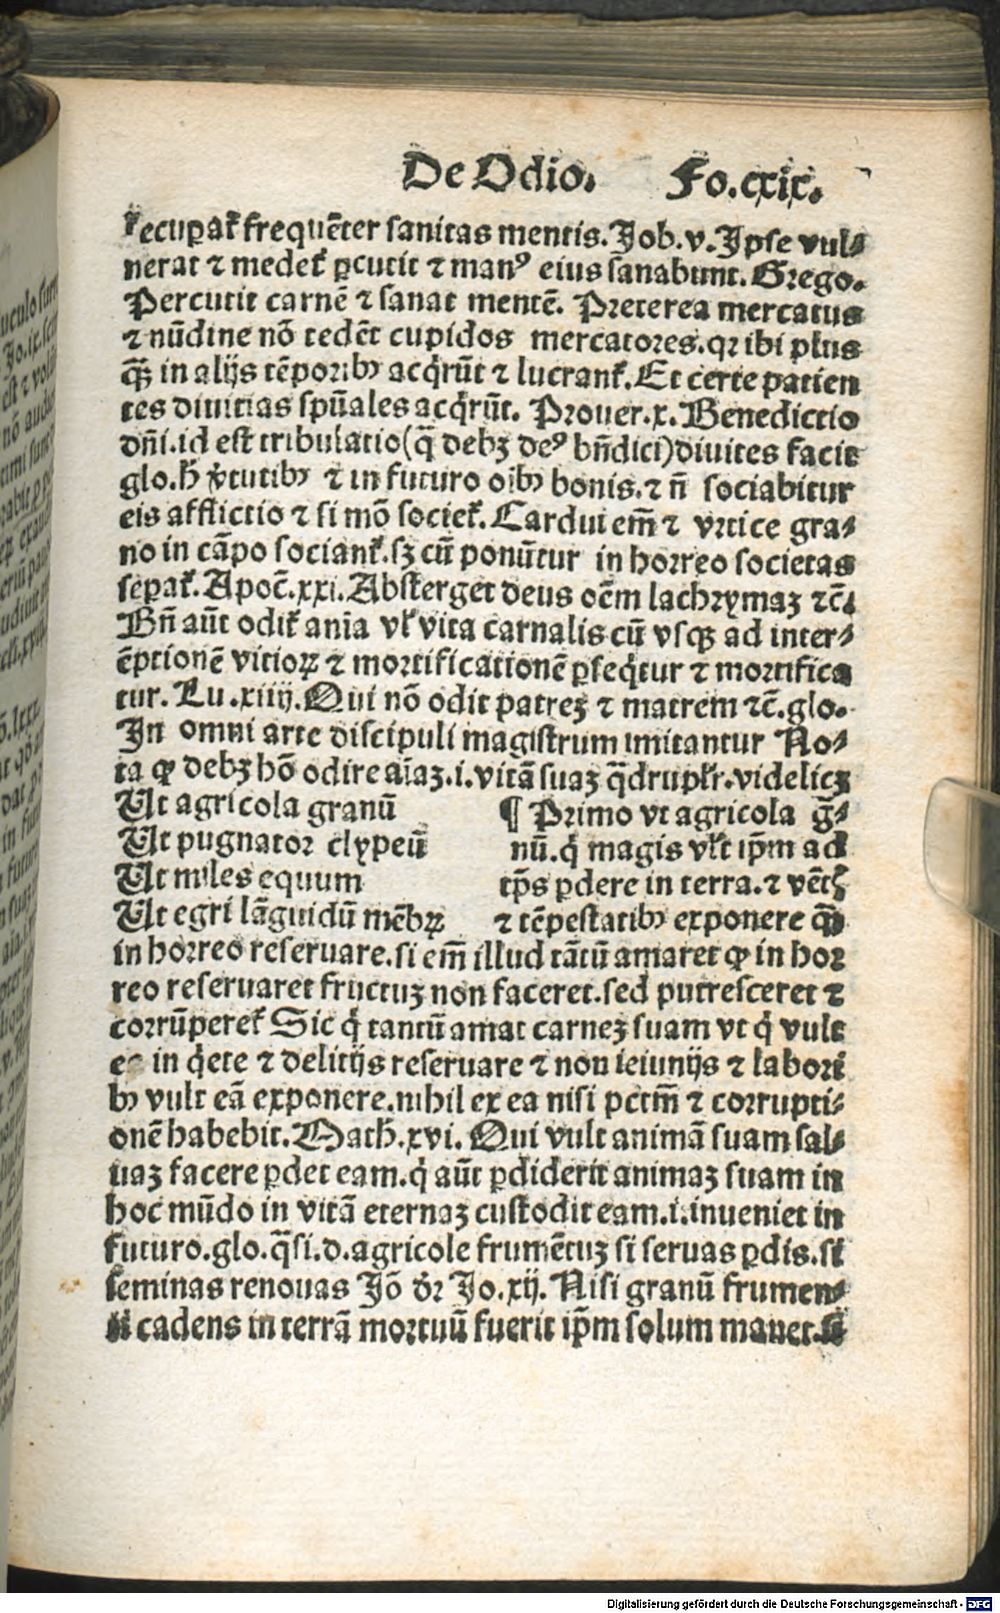 De Odio. Fo.cxix.
recuꝑat᷑ frequẽter sanitas mentis. Job. v. Ipse vul⸗
nerat ⁊ medet᷑ ꝑcutit ⁊ manꝰ eius sanabunt. Grego.
Percutit carnẽ ⁊ sanat mentẽ. Preterea mercatus
⁊ nũdine nõ tedẽt cupidos mercatores. qꝛ ibi plus
ꝙ̃ in alijs tẽporibꝰ acq̇rũt ⁊ lucrant᷑. Et certe patien
tes diuitias spũales acq̇rũt. Prouer. x. Benedictio
dñi .id est tribulatio (q̃ debꝫ deꝰ bñdici) diuites facit
glo. h̃ v̓tutibꝰ ⁊ in futuro oĩbꝰ bonis. ⁊ ñ sociabitur
eis afflictio ⁊ si mõ societ᷑. Cardui em̃ ⁊ vrtice gra⸗
no in cãpo sociant᷑. sꝫ cũ ponũtur in horreo societas
separat᷑. Apoc̃. xxi. Absterget deus oẽm lachrymaꝫ ⁊c̃.
Bñ aũt odit᷑ anĩa vl̓ vita carnalis cũ vsqꝫ ad inter⸗
ẽptionẽ vitioꝝ ⁊ mortificationẽ ꝑseq̇tur ⁊ mortifica
tur. Lu. xiiij. Qui nõ odit patreꝫ ⁊ matrem ⁊c̃. glo.
In omni arte discipuli magistrum imitantur No⸗
ta ꝙ debꝫ hõ odire aĩaꝫ .i. vitã suaꝫ q̃drupl̓r. videlicꝫ
Ut agricola granũ
Ut pugnator clypeũ
Ut miles equum
Ut egri lãguidũ mẽbꝝ
¶ Primo vt agricola g̃⸗
nũ. q̇ magis vl̓t ip̃m ad
tp̃s ꝑdere in terra. ⁊ vẽtꝭ
⁊ tẽpestatibꝰ exponere ꝙ̃
in horreo reseruare. si em̃ illud tãtũ amaret ꝙ in hoꝛ
reo reseruaret fructuꝫ non faceret. sed putresceret ⁊
corrũperet᷑ Sic q̇ tantũ amat carneꝫ suam vt q̇ vult
in q̇ete ⁊ delitijs reseruare ⁊ non ieiunijs ⁊ labori
bꝰ vult eã exponere. nihil ex ea nisi pctm̃ ⁊ corrupti⸗
onẽ habebit. Math̃. xvi. Qui vult animã suam sal⸗
uaꝫ facere ꝑdet eam. q̇ aũt ꝑdiderit animaꝫ suam in
hoc mũdo in vitã eternaꝫ custodit eam .i. inueniet in
futuro. glo. q̃si. d. agricole frumẽtuꝫ si seruas ꝑdis. si
seminas renouas Jõ dr̃ Jo. xij. Nisi granũ frumen⸗
ti cadens in terrã mortuũ fuerit ip̃m solum manet.
Digitalisierung gefördert durch die Deutsche Forschungsgemeinschaft - DFG